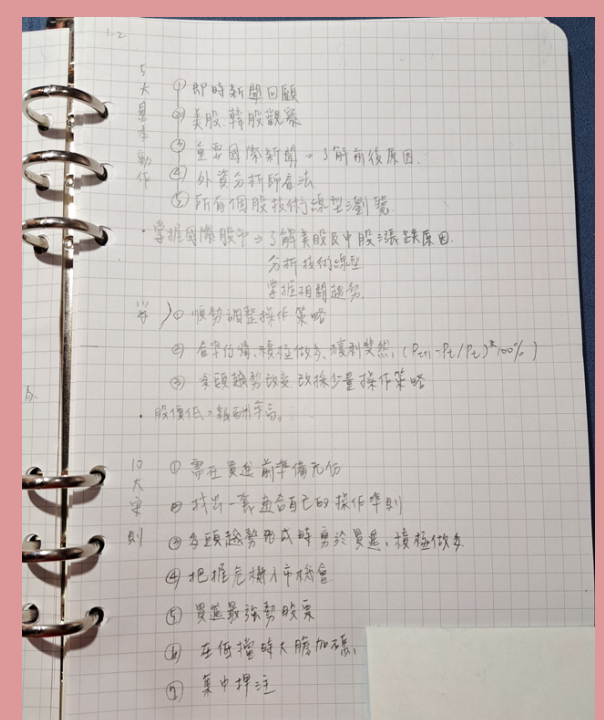 1-2
5大基本動作
① 即時新聞回顧
② 美股、韓股觀察
③ 重要國際新聞。了解前後原因.
④ 外資分析師看法
⑤ 所有個股技術線型瀏覽
· 掌握國際股市 => 了解美股及中股漲跌原因.
分析技術線型
掌握相關趨勢
① 順勢調整操作策略
② 合乎行情、積極做多、獲利斐然, (Pt+1-Pt/Pt)*100%)
③ 多頭趨勢改變 改採少量操作策略
· 股價低、報酬率高。
10大原則
① 需在買進前準備充份
② 找出一套適合自己的操作準則
③ 多頭趨勢形成時勇於買進、積極做多
④ 把握危機入市機會
⑤ 買進最強勢股票
⑥ 在低檔時大膽加碼.
⑦ 集中押注